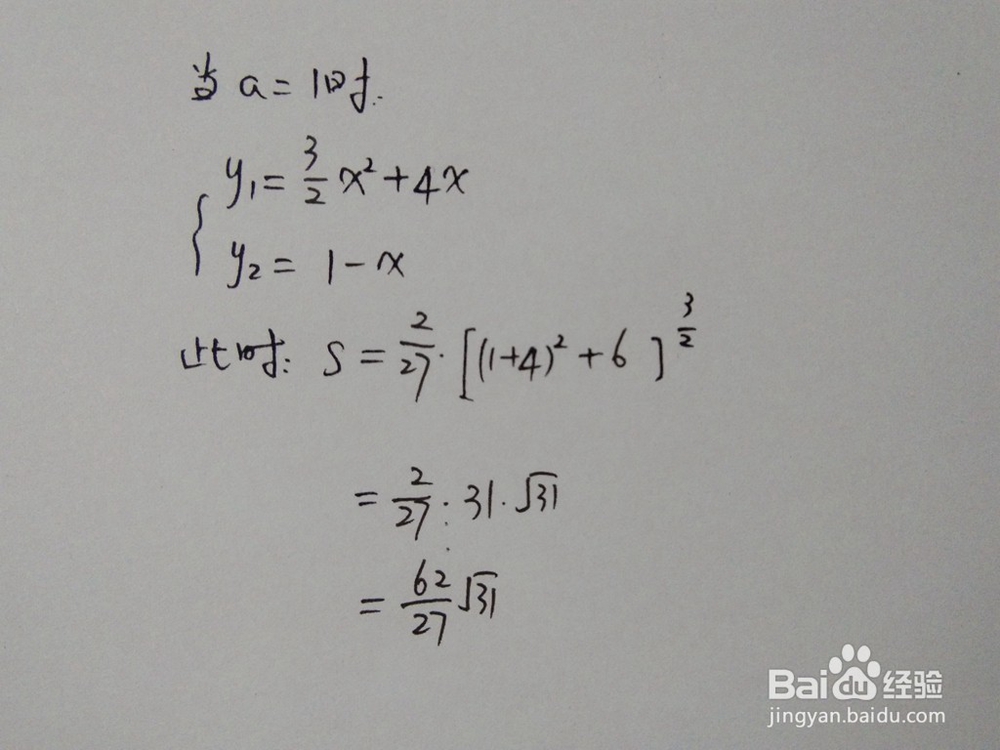 当 a = 1时.
y₁ = 3/2 x² + 4x
y₂ = 1 - x
此时: S = 2/27 · [(1+4)² + 6]^(3/2)
= 2/27 · 31 · √31
= 62/27 √31
Baidu 经验
jingyan.baidu.com